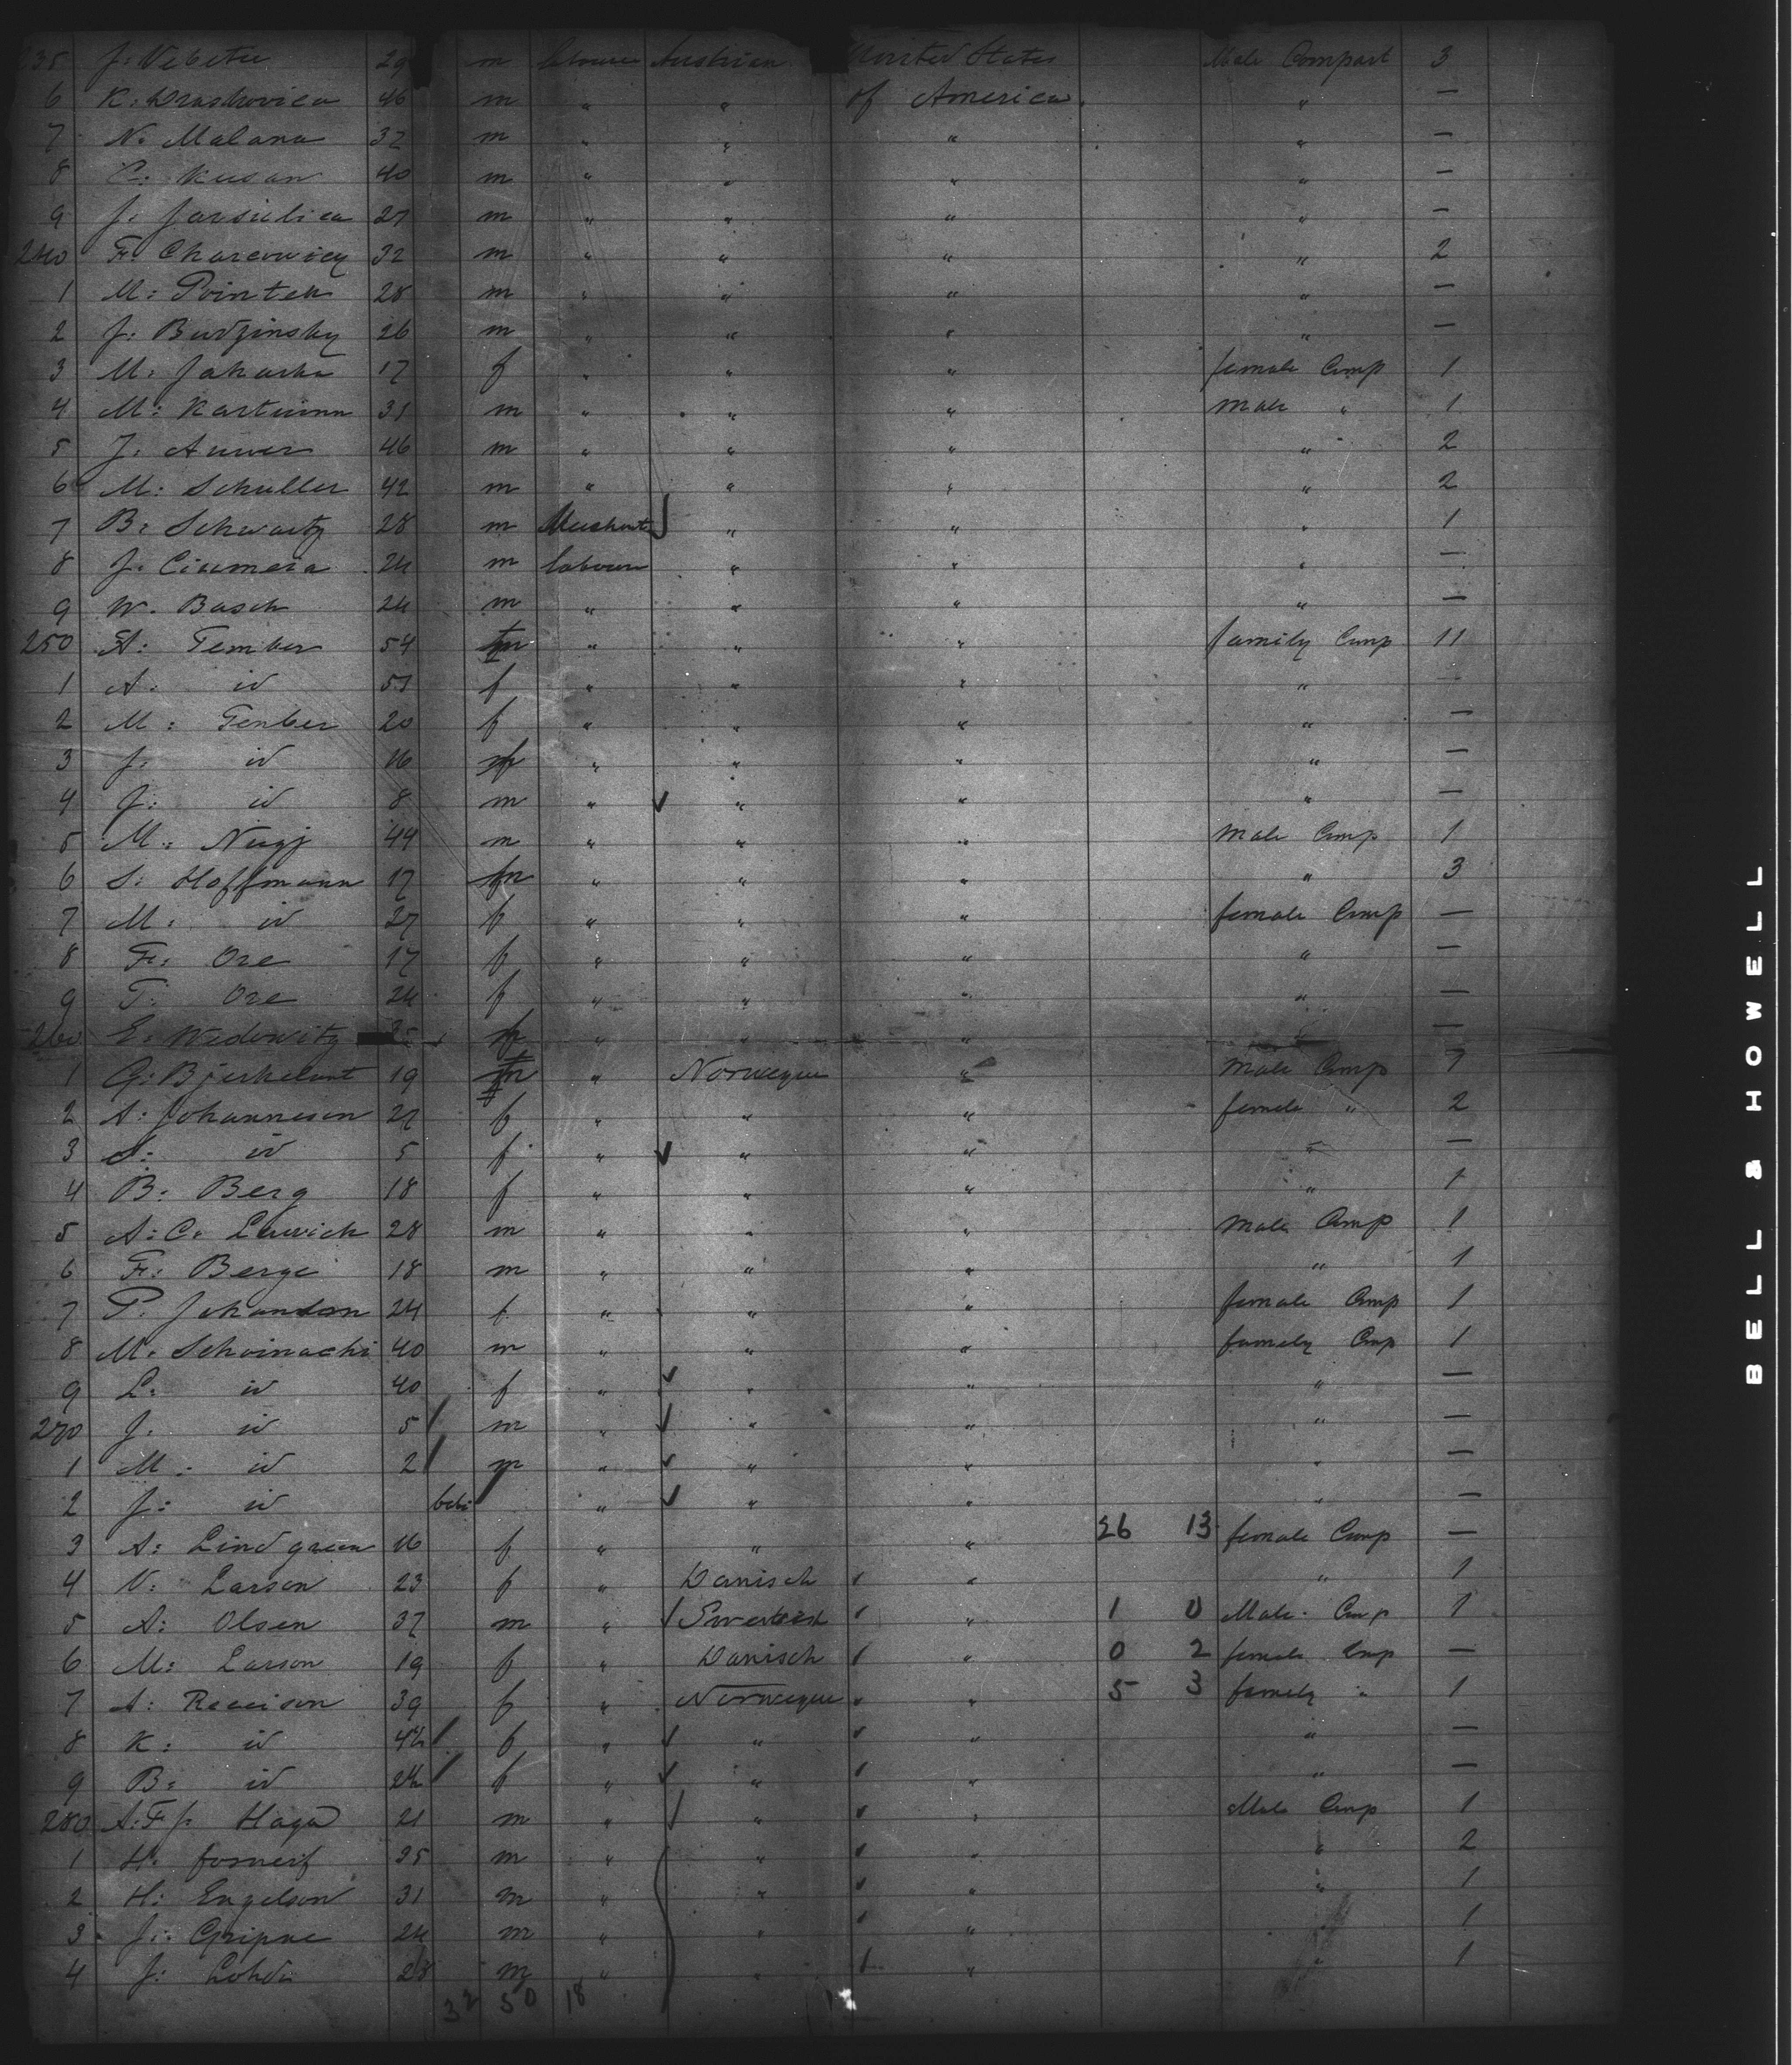 235 J: Vebetu 29 m labourer Austrian United States Male Compart 3
6 K: Draskovica 46 m " " of America. " —
7 N: Malana 32 m " " " " —
8 C: Kusan 40 m " " " " —
9 J: Jarsulica 27 m " " " " —
240 F: Charcowicy 32 m " " " " 2
1 M: Pointek 28 m " " " " —
2 J: Budzinsky 26 m " " " " —
3 M: Jakuska 17 f " " " female Comp 1
4 M: Kartmann 31 m " " " male " 1
5 J: Auwer 46 m " " " " 2
6 M: Schuller 42 m " " " " 2
7 B: Schwartz 28 m " " " 1
8 J: Ciumeia 24 m labourer " " " —
9 W. Basch 24 m " " " " —
250 A: Tember 54 m " " " family Comp 11
1 A: id 51 f " " " " —
2 M: Tember 20 f " " " " —
3 J: id 16 " " " " —
4 J: id 8 m " " " " —
5 M: Nagj 44 m " " " Male Comp 1
6 S: Hoffmann 17 m " " " " 3
7 M: id 27 f " " " female Comp —
8 F: Ore 17 f " " " " —
9 T: Ore 24 f " " " " —
260 E: Widowitz f " " " —
1 G: Bjerkelunt 19 m " Norwegue " Male Comp 7
2 A: Johannesen 27 f " " " female " 2
3 id 5 f " " " " —
4 B: Berg 18 f " " " " 1
5 A: C: Lewick 28 m " " " Male Comp 1
6 F: Berge 18 m " " " " 1
7 P. Johansson 24 f " " " female Comp 1
8 M. Schoinachi 40 m " " " famely Cmp 1
9 L: id 40 f " " " " —
270 J. id 5 m " " " " —
1 M: id 2 m " " " " —
2 J: id " " " " —
3 A: Lindgreen 16 f " " " 26 13 female Comp —
4 N: Larson 23 f " Danisch " " 1
5 A: Olsen 37 m " " 1 0 Male Cmp 1
6 M: Larson 19 f " Danisch " 0 2 female Cmp —
7 A: Reccison 39 f " Norwegue " 5 3 famely " 1
8 K: id f " " " " —
9 B: id 24 f " " " " —
280 A: F J: Haga 21 m " " " Male Comp 1
1 H. 35 m " " " " 2
2 H: Engelson 31 m " " " " 1
3 J: Gripne 24 m " " " 1
4 J: 28 m " " " " 1
32 50 18
BELL & HOWELL